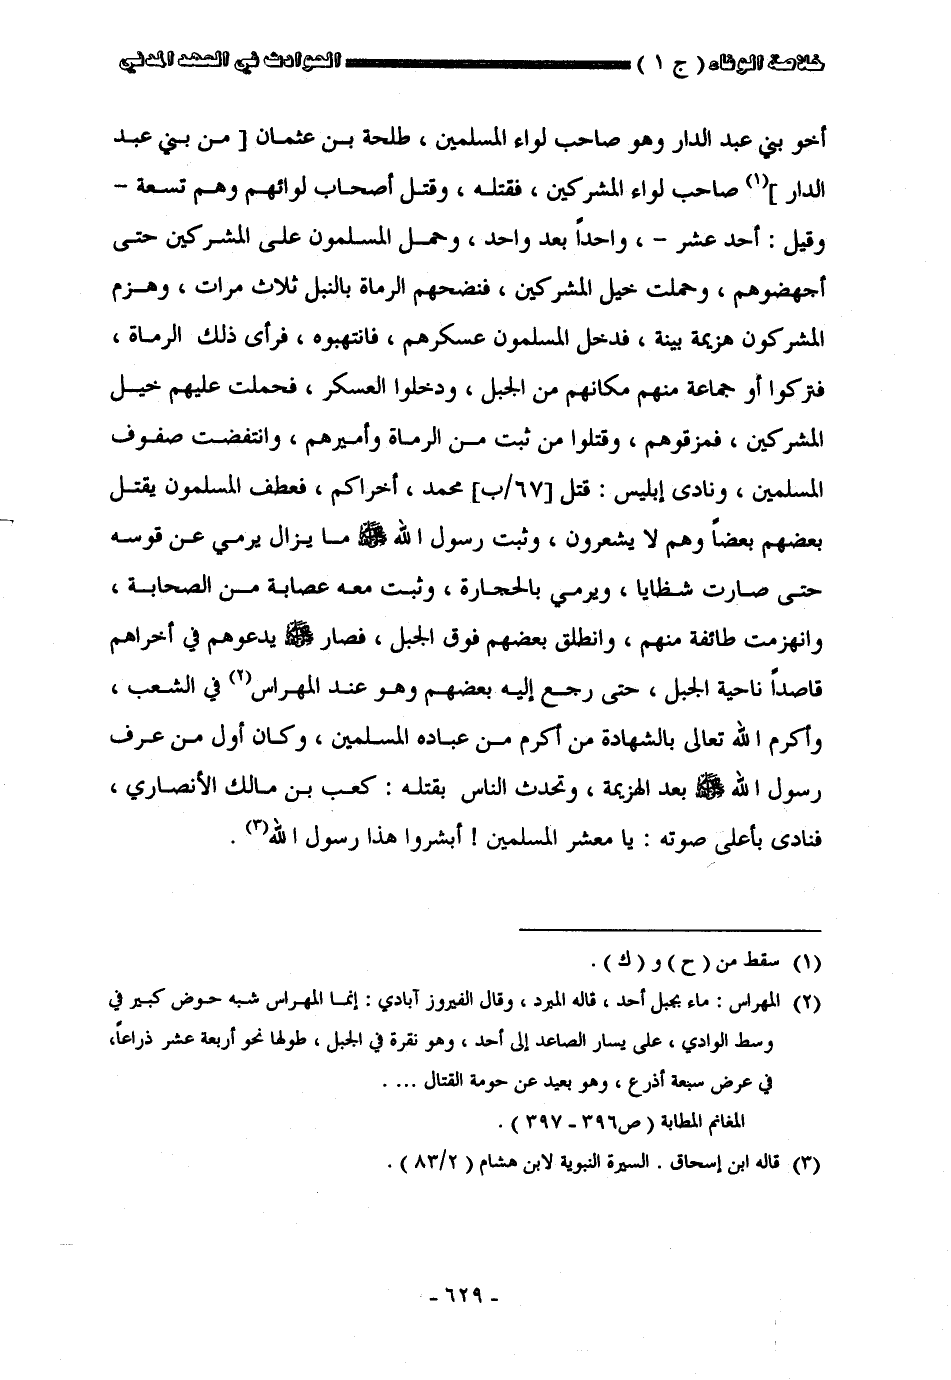 خلاصة الوفاء ( ج ١ ) الحوادث في العهد المدني
أخو بني عبد الدار وهو صاحب لواء المسلمين ، طلحة بن عثمان [ من بني عبد
الدار ](١) صاحب لواء المشركين ، فقتله ، وقتل أصحاب لوائهم وهم تسعة -
وقيل : أحد عشر - ، واحداً بعد واحد ، وحمل المسلمون على المشركين حتى
أجهضوهم ، وحملت خيل المشركين ، فنضحهم الرماة بالنبل ثلاث مرات ، وهزم
المشركون هزيمة بينة ، فدخل المسلمون عسكرهم ، فانتهبوه ، فرأى ذلك الرماة ،
فتركوا أو جماعة منهم مكانهم من الجبل ، ودخلوا العسكر ، فحملت عليهم خيل
المشركين ، فمزقوهم ، وقتلوا من ثبت من الرماة وأميرهم ، وانتفضت صفوف
المسلمين ، ونادى إبليس : قتل [٦٧/ب] محمد ، أخراكم ، فعطف المسلمون يقتل
بعضهم بعضاً وهم لا يشعرون ، وثبت رسول الله ﷺ ما يزال يرمي عن قوسه
حتى صارت شظايا ، ويرمي بالحجارة ، وثبت معه عصابة من الصحابة ،
وانهزمت طائفة منهم ، وانطلق بعضهم فوق الجبل ، فصار ﷺ يدعوهم في أخراهم
قاصداً ناحية الجبل ، حتى رجع إليه بعضهم وهو عند المهراس(٢) في الشعب ،
وأكرم الله تعالى بالشهادة من أكرم من عباده المسلمين ، وكان أول من عرف
رسول الله ﷺ بعد الهزيمة ، وتحدث الناس بقتله : كعب بن مالك الأنصاري ،
فنادى بأعلى صوته : يا معشر المسلمين ! أبشروا هذا رسول الله(٣) .
(١) سقط من ( ح ) و ( ك ) .
(٢) المهراس : ماء بجبل أحد ، قاله المبرد ، وقال الفيروز آبادي : إنما المهراس شبه حوض كبير في
وسط الوادي ، على يسار الصاعد إلى أحد ، وهو نقرة في الجبل ، طولها نحو أربعة عشر ذراعاً،
في عرض سبعة أذرع ، وهو بعيد عن حومة القتال ... .
المغانم المطابة ( ص٣٩٦ - ٣٩٧ ) .
(٣) قاله ابن إسحاق . السيرة النبوية لابن هشام ( ٨٣/٢ ) .
- ٦٢٩ -